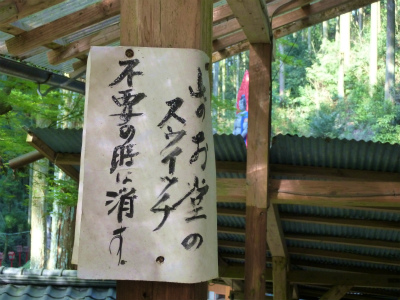 山のお堂の
スヴイッチ
不要の時は消す